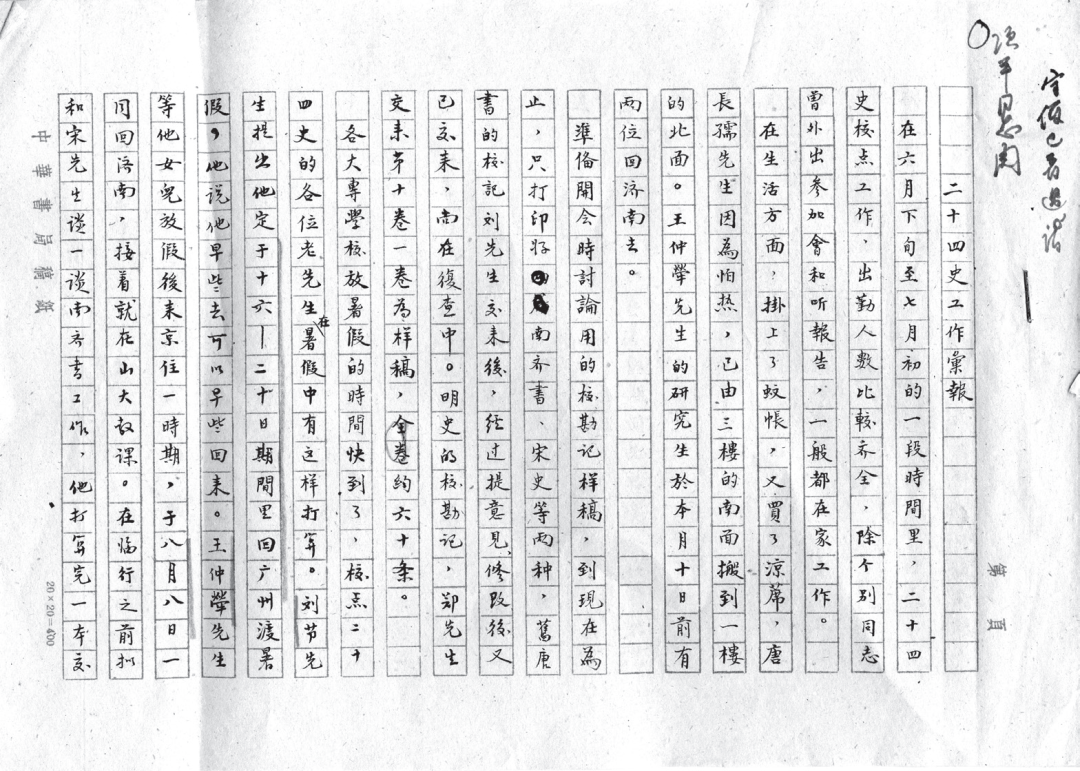 二十四史工作彙報
在六月下旬至七月初的一段時間里，二十四
史校点工作，出勤人数比較齐全，除个別同志
曾外出参加會和听報告，一般都在家工作。
在生活方面，掛上了蚊帳，又買了涼蓆，唐
長孺先生因為怕热，已由三樓的南面搬到一樓
的北面。王仲犖先生的研究生於本月十日前有
两位回济南去。
準俻開会時討論用的校勘记样稿，到現在為
止，只打印好南齐書、宋史等两种，舊唐
書的校記刘先生交来後，经过提意見，修改後又
已交来，尚在復查中。明史的校勘记，郑先生
交来第十卷一卷為样稿，全卷約六十条。
各大專學校放暑假的時間快到了，校点二十
四史的各位老先生在暑假中有这样打算。刘节先
生提出他定于十六—二十日期間里回广州渡暑
假，他说他早些去可以早些回来。王仲犖先生
等他女兒放假後来京住一時期，于八月八日一
同回济南，接着就在山大教课。在临行之前拟
和宋先生谈一谈南齐書工作，他打算完一本交
中華書局稿紙
20×20=400
第 頁